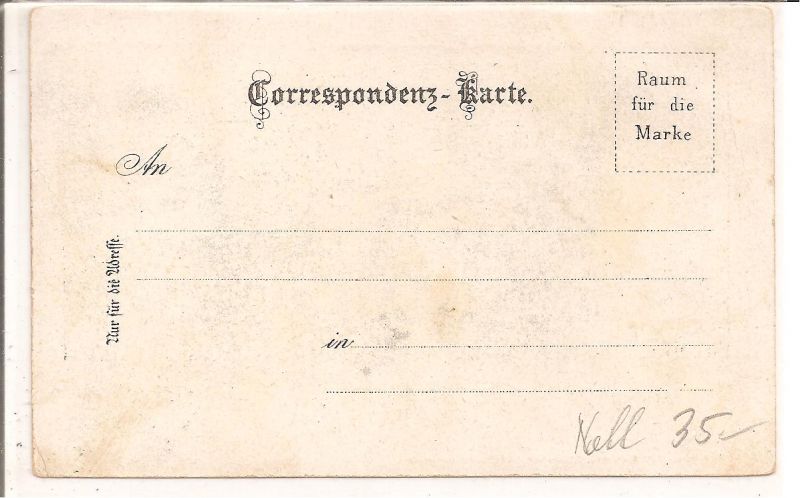 Correspondenz-Karte.
Raum
für die
Marke
An
Nur für die Adresse.
in
35.-